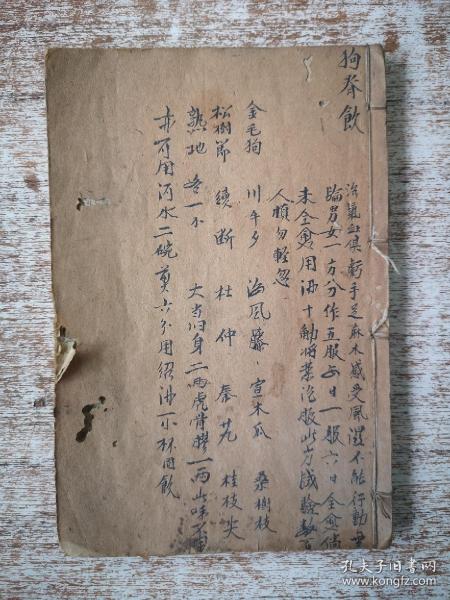 狗脊飲
治氣血俱虧手足麻木感受風濕不能行動
論男女一方分作五服每日一服六日全愈倘
未全愈用酒十觔將藥泡服此方試驗數百
人慎勿輕忽
金毛狗 川牛夕 海風藤 宣木瓜 桑樹枝
松樹節 續斷 杜仲 秦艽 桂枝尖
熟地 各一 大當归身二兩虎骨膠一兩山
亦可用河水二碗煎六分用紹酒一小杯同飲
孔夫子旧书网
www.kongfz.com